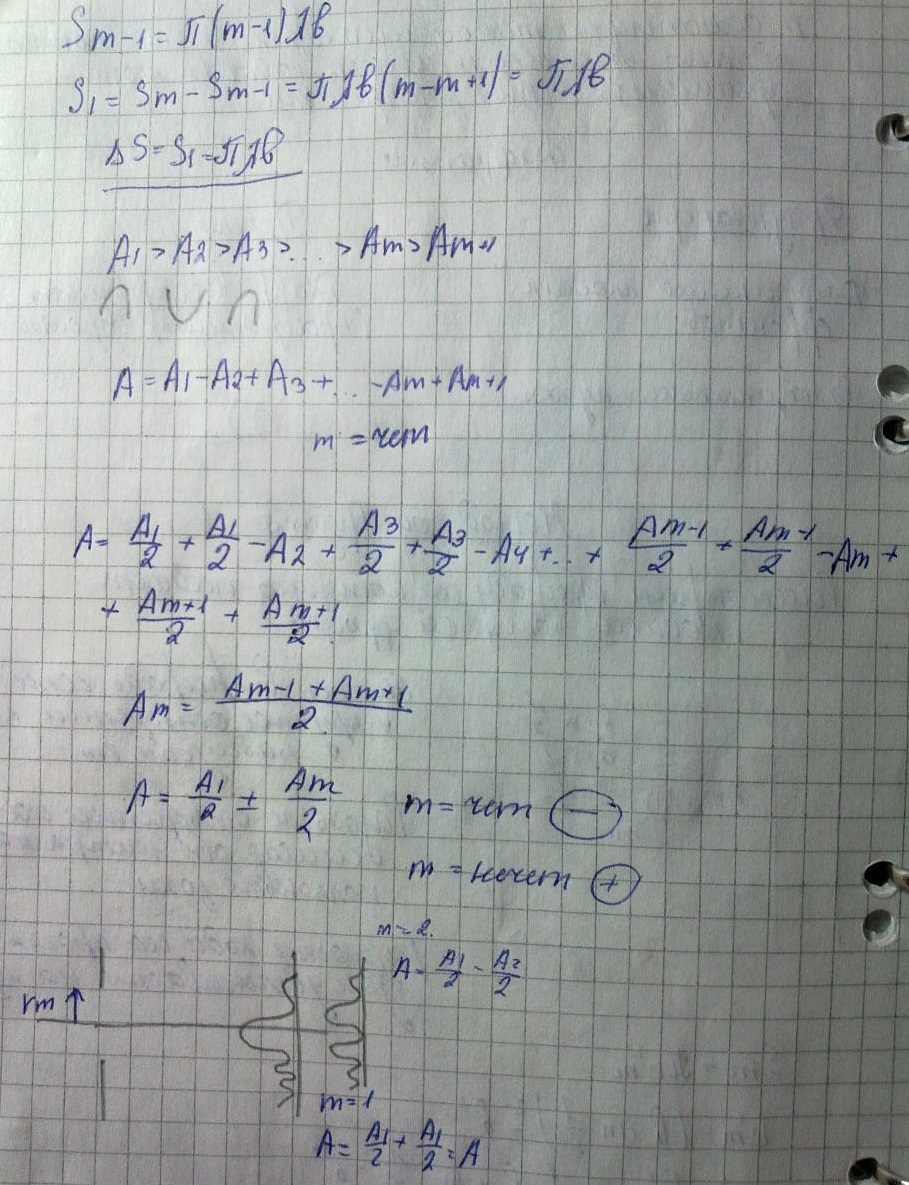 Sm-1 = π(m-1)λb
S1 = Sm - Sm-1 = πλb(m-m+1) = πλb
ΔS = S1 = πλb
A1 > A2 > A3 > ... > Am > Am+1
A = A1 - A2 + A3 + ... - Am + Am+1
m = чет
A = A1/2 + A1/2 - A2 + A3/2 + A3/2 - A4 + ... + Am-1/2 + Am-1/2 - Am +
+ Am+1/2 + Am+1/2
Am = (Am-1 + Am+1)/2
A = A1/2 ± Am/2 m = чет −
m = нечет +
m = 2.
A = A1/2 - A2/2
rm ↑
m = 1
A = A1/2 + A1/2 = A